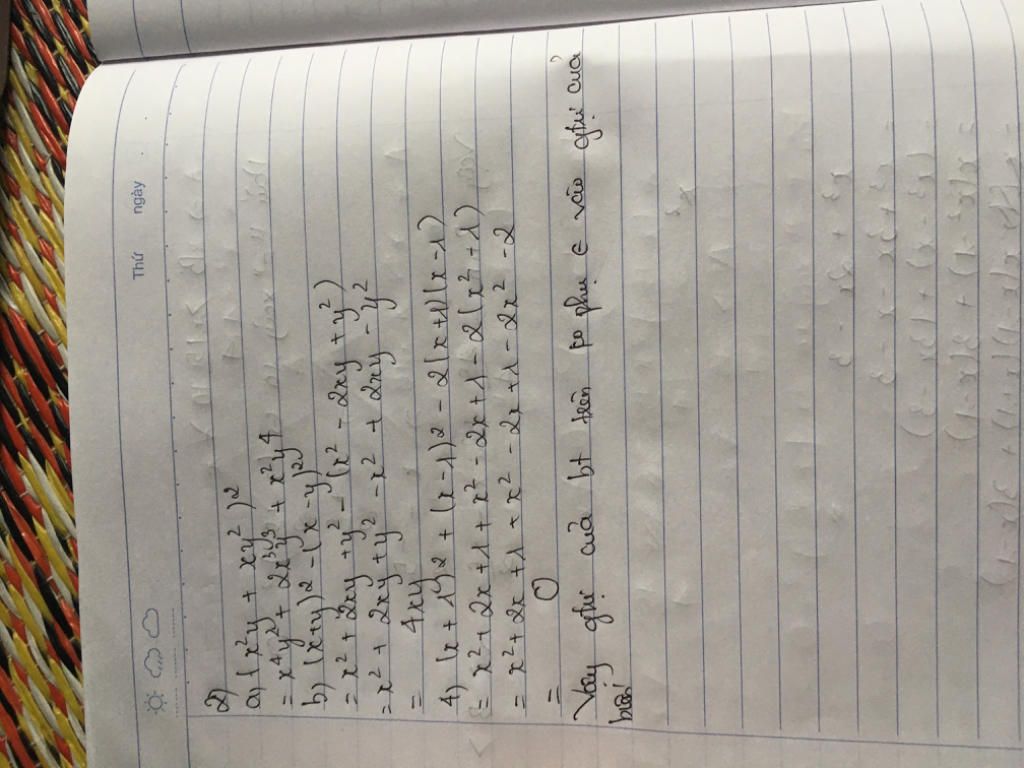 Thứ ngày
2)
a) (x²y + xy²)²
= x⁴y² + 2x³y³ + x²y⁴
b) (x+y)² - (x - y)²
= x² + 2xy + y² - (x² - 2xy + y²)
= x² + 2xy + y² - x² + 2xy - y²
= 4xy
4) (x + 1)² + (x - 1)² - 2(x+1)(x-1)
= x² + 2x + 1 + x² - 2x + 1 - 2(x² - 1)
= x² + 2x + 1 + x² - 2x + 1 - 2x² - 2
= 0
Vậy của bt trên ko phụ vào của